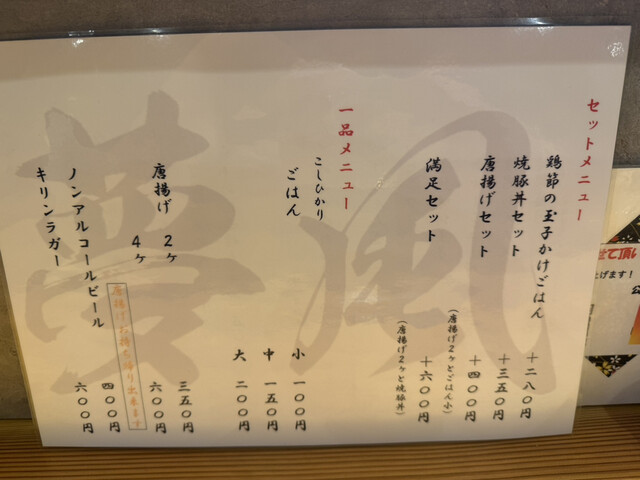 セットメニュー
鶏節の玉子かけごはん 十二八〇円
焼豚丼セット 十三五〇円
唐揚げセット 十四〇〇円
(唐揚げ2ヶとごはん小)
満足セット 十六〇〇円
(唐揚げ2ヶと焼豚丼)
一品メニュー
こしひかり
ごはん 小 一〇〇円
中 一五〇円
大 二〇〇円
唐揚げ 2ヶ 三五〇円
4ヶ 六〇〇円
唐揚げお持ち帰り出来ます
ノンアルコールビール 四〇〇円
キリンラガー 六〇〇円
夢風
せて頂い
上げます!